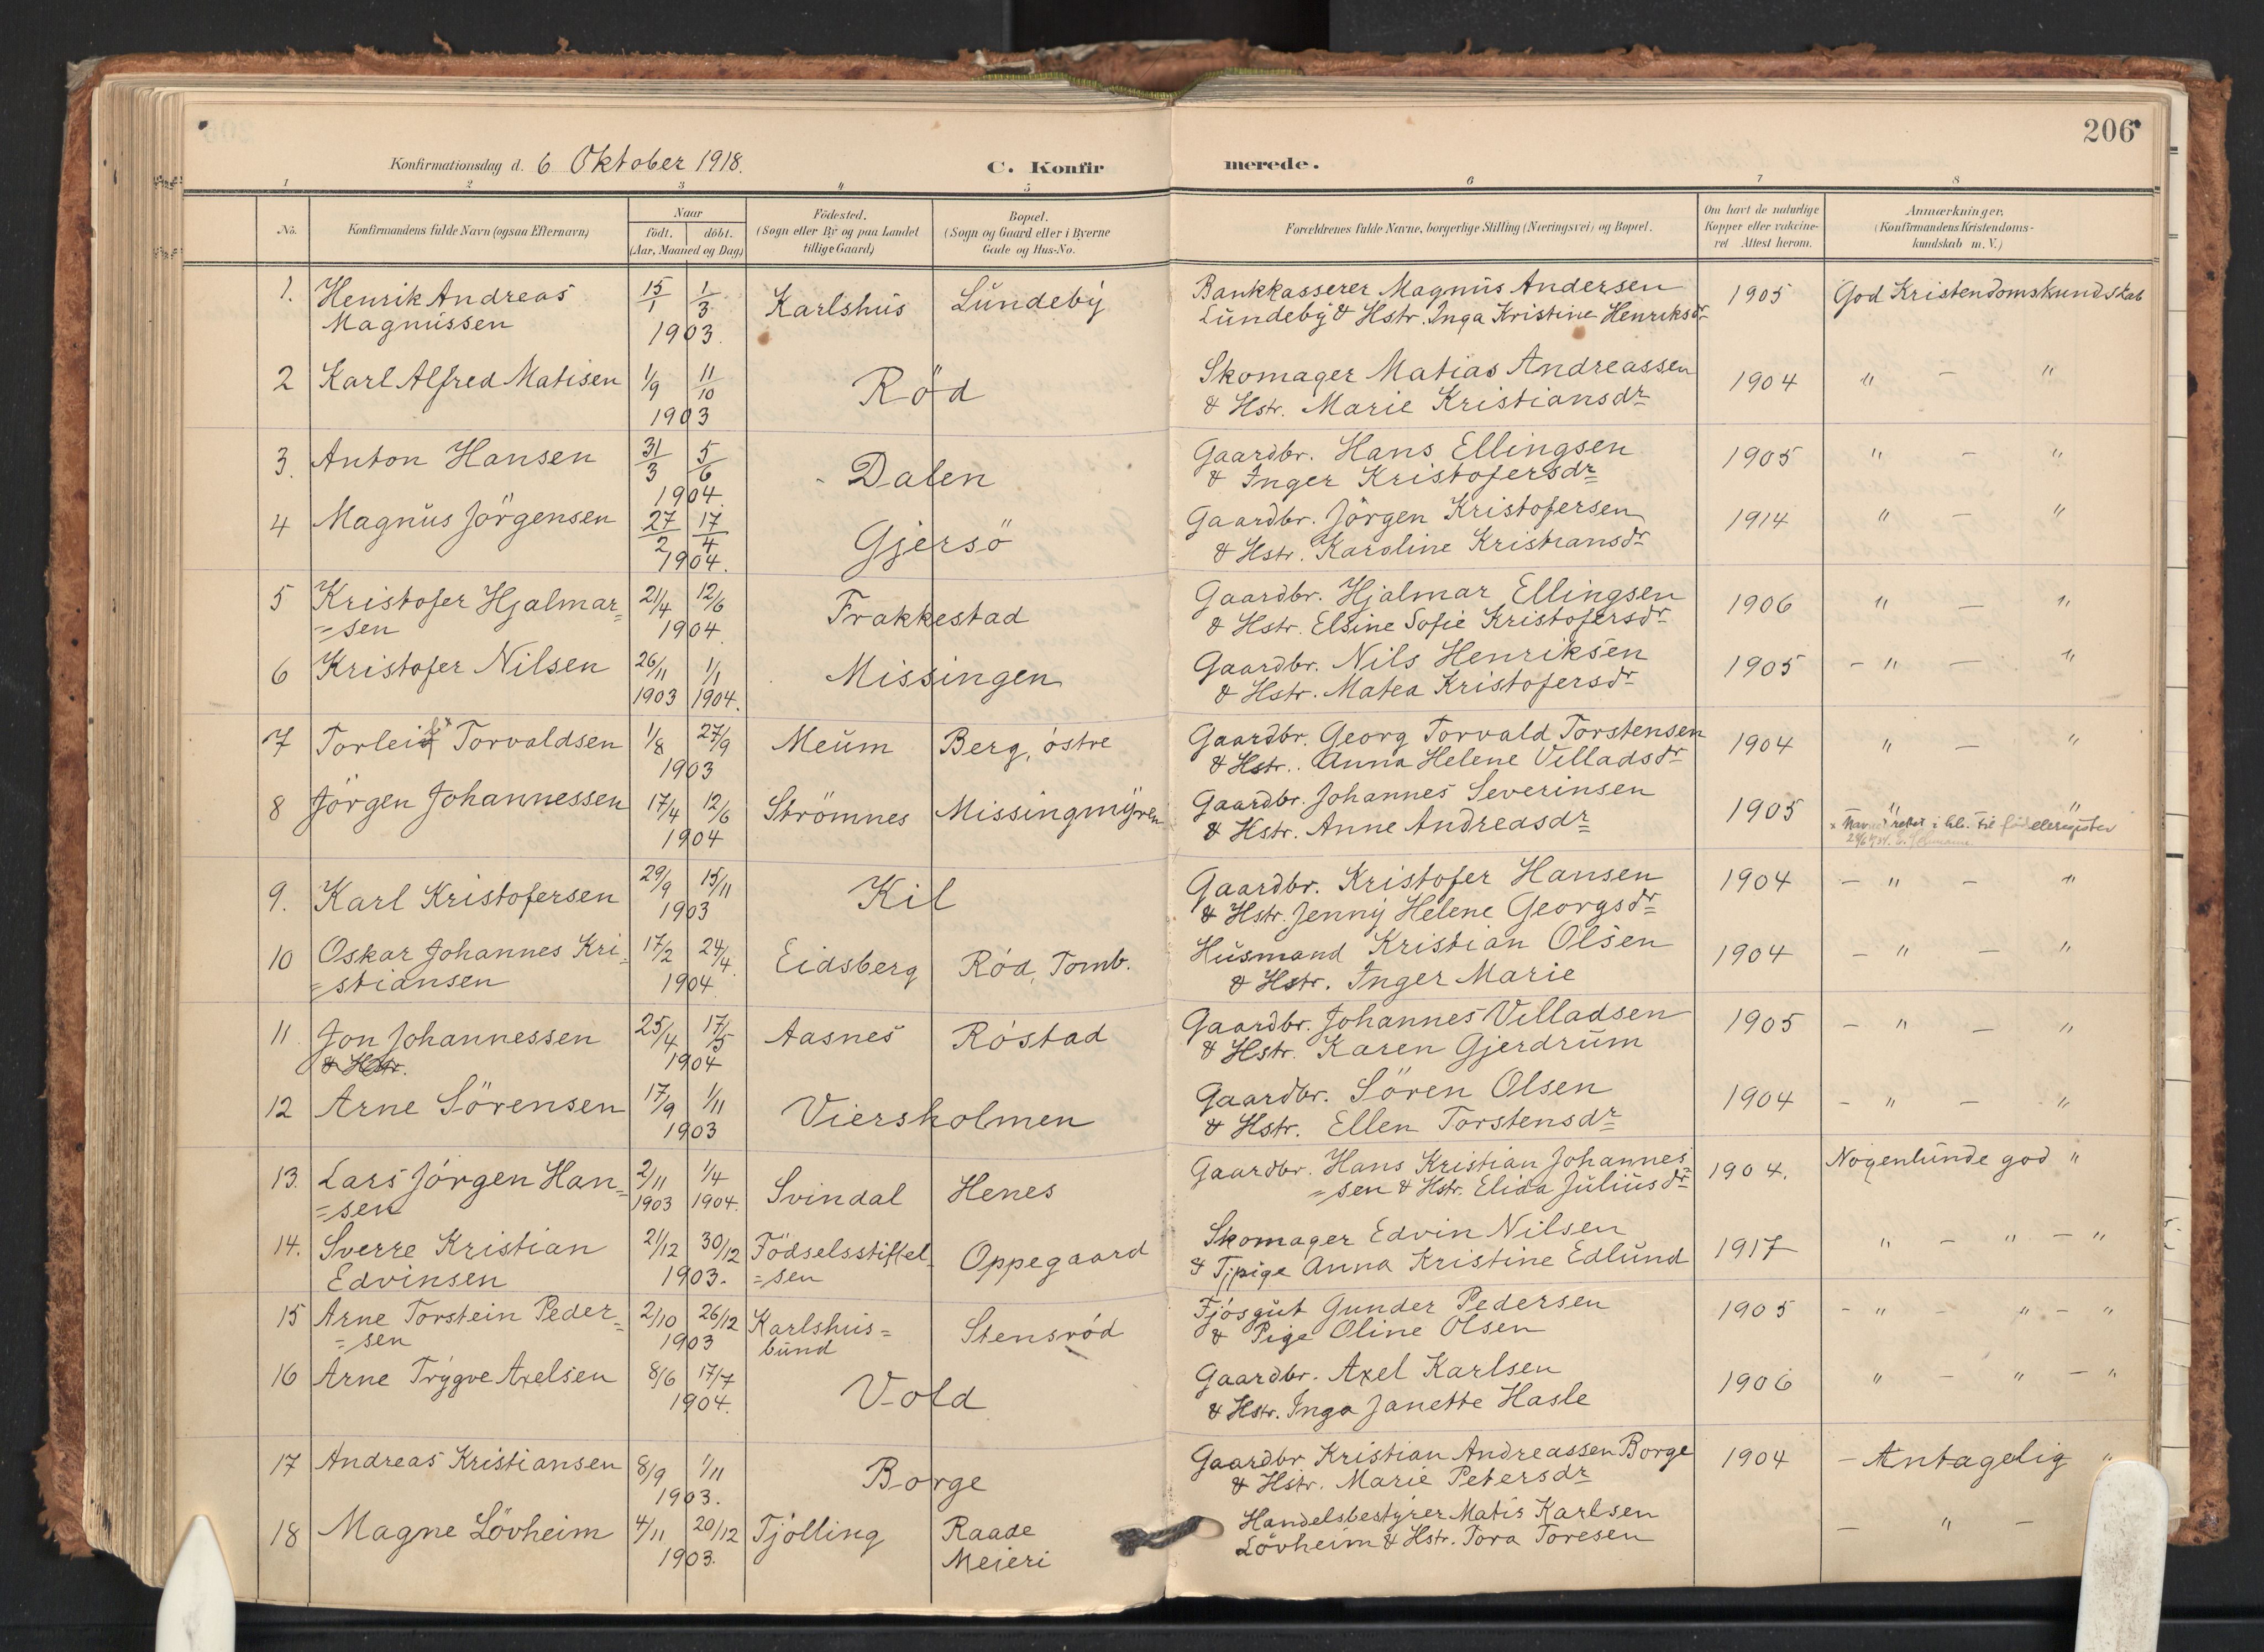 206
Konfirmationsdag d. 6 Oktober 1918.
C. Konfirmerede.
1 2 3 4 5 6 7 8
No.
Konfirmandens fulde Navn (ogsaa Efternavn)
Naar
födt. döbt.
(Aar, Maaned og Dag)
Födested.
(Sogn eller By og paa Landet
tillige Gaard)
Bopæl.
(Sogn og Gaard eller i Byerne
Gade og Hus-No.
Forældrenes fulde Navne, borgerlige Stilling (Næringsvei) og Bopæl.
Om havt de naturlige
Kopper eller vakcine-
ret Attest herom.
Anmærkninger,
(Konfirmandens Kristendoms-
kundskab m. V.)
1. Henrik Andreas 15/1 1/3 Karlshus Lundeby Bankkasserer Magnus Andersen 1905 God Kristendomskundskab
Magnussen 1903. Lundeby & Hstr. Inga Kristine Henriksdr
2 Karl Alfred Matisen 1/9 11/10 Röd Skomager Matias Andreassen 1904 " — "
1903 & Hstr. Marie Kristiansdr
3. Anton Hansen 31/3 5/6 Dalen Gaardbr. Hans Ellingsen 1905 " — "
1904. & Inger Kristofersdr
4 Magnus Jörgensen 27/2 17/4 Gjersö Gaardbr. Jörgen Kristofersen 1914 " — "
1904. & Hstr. Karoline Kristiansdr
5 Kristofer Hjalmar= 21/4 12/6 Frakkestad Gaardbr. Hjalmar Ellingsen 1906 " — "
=sen 1904. & Hstr. Elsine Sofie Kristofersdr
6 Kristofer Nilsen 26/11 1/1 Missingen Gaardbr. Nils Henriksen 1905 - " — "
1903 1904. & Hstr. Matea Kristofersdr
7 Torleif x Torvaldsen 1/8 27/9 Meum Berg, östre Gaardbr. Georg Torvald Torstensen 1904 " — "
1903 & Hstr. Anna Helene Villadsdr
8 Jörgen Johannessen 17/4 12/6 Strömnes Missingmyren Gaardbr. Johannes Severinsen 1905 " "
1904 & Hstr. Anne Andreasdr x Navnet rettet i hh. til födelsregister
9. Karl Kristofersen 29/9 15/11 Kil Gaardbr. Kristofer Hansen 1904 - " — "
1903 & Hstr. Jenny Helene Georgsdr
10 Oskar Johannes Kri= 17/2 24/4. Eidsberg Röd, Tomb. Husmand Kristian Olsen 1904 - " — "
=stiansen 1904 & Hstr. Inger Marie
11. Jon Johannessen 25/4 17/5 Aasnes Röstad Gaardbr. Johannes Villadsen 1905 - " — "
& Hstr. 1904 & Hstr. Karen Gjerdrum
12 Arne Sörensen 17/9 1/11 Viersholmen Gaardbr. Sören Olsen 1904 - " — "
1903 & Hstr. Ellen Torstensdr
13. Lars Jörgen Han= 2/11 1/4 Svindal Henes Gaardbr. Hans Kristian Johannes= 1904. Nogenlunde god "
=sen 1903 1904. =sen & Hstr. Elida Juliusdr
14. Sverre Kristian 21/12 30/12 Födselsstiftel= Oppegaard Skomager Edvin Nilsen 1917 " — " — "
Edvinsen 1903. =sen & Tj.pige Anna Kristine Edlund
15 Arne Torstein Peder= 2/10 26/12 Karlshus= Stensröd Fjösgut Gunder Pedersen 1905 - " — " — "
=sen 1903 bund & Pige Oline Olsen
16 Arne Trygve Axelsen 8/6 17/7 Vold Gaardbr. Axel Karlsen 1906 " — " — "
1904. & Hstr. Inga Janette Hasle
17 Andreas Kristiansen 8/9 1/11 Borge Gaardbr Kristian Andreassen Borge 1904 - Antagelig "
1903. & Hstr. Marie Petersdr
18 Magne Lövheim 4/11 20/12 Tjölling Raade Handelsbestyrer Matis Karlsen — " —
1903. Meieri Lövheim & Hstr. Tora Toresen